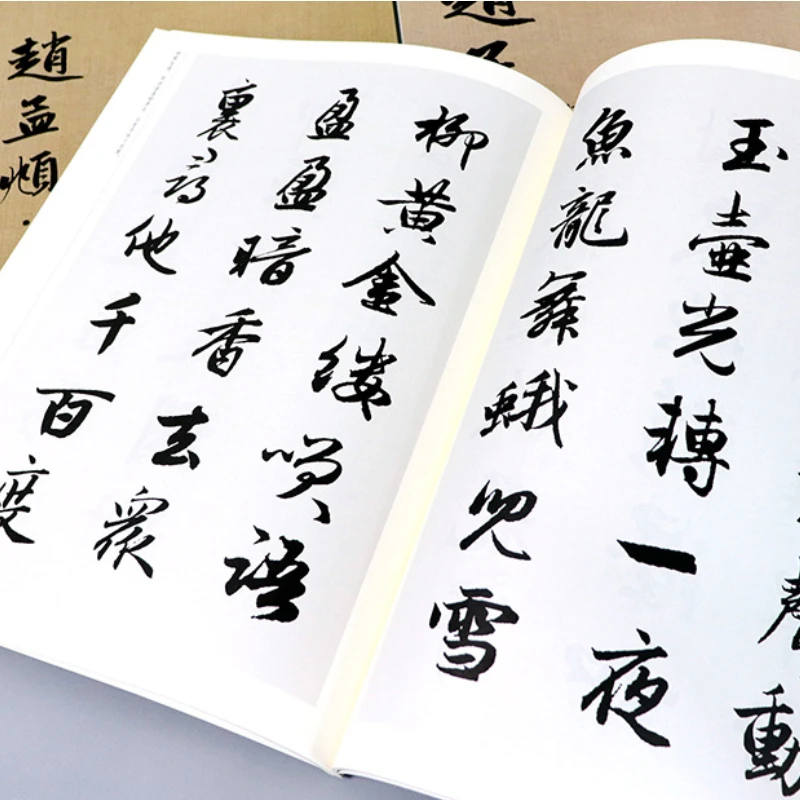 聲動
玉壺光轉一夜
魚龍舞蛾兒雪
柳黃金縷咲語
盈盈暗香去衆
裏尋他千百度
趙孟頫
趙孟